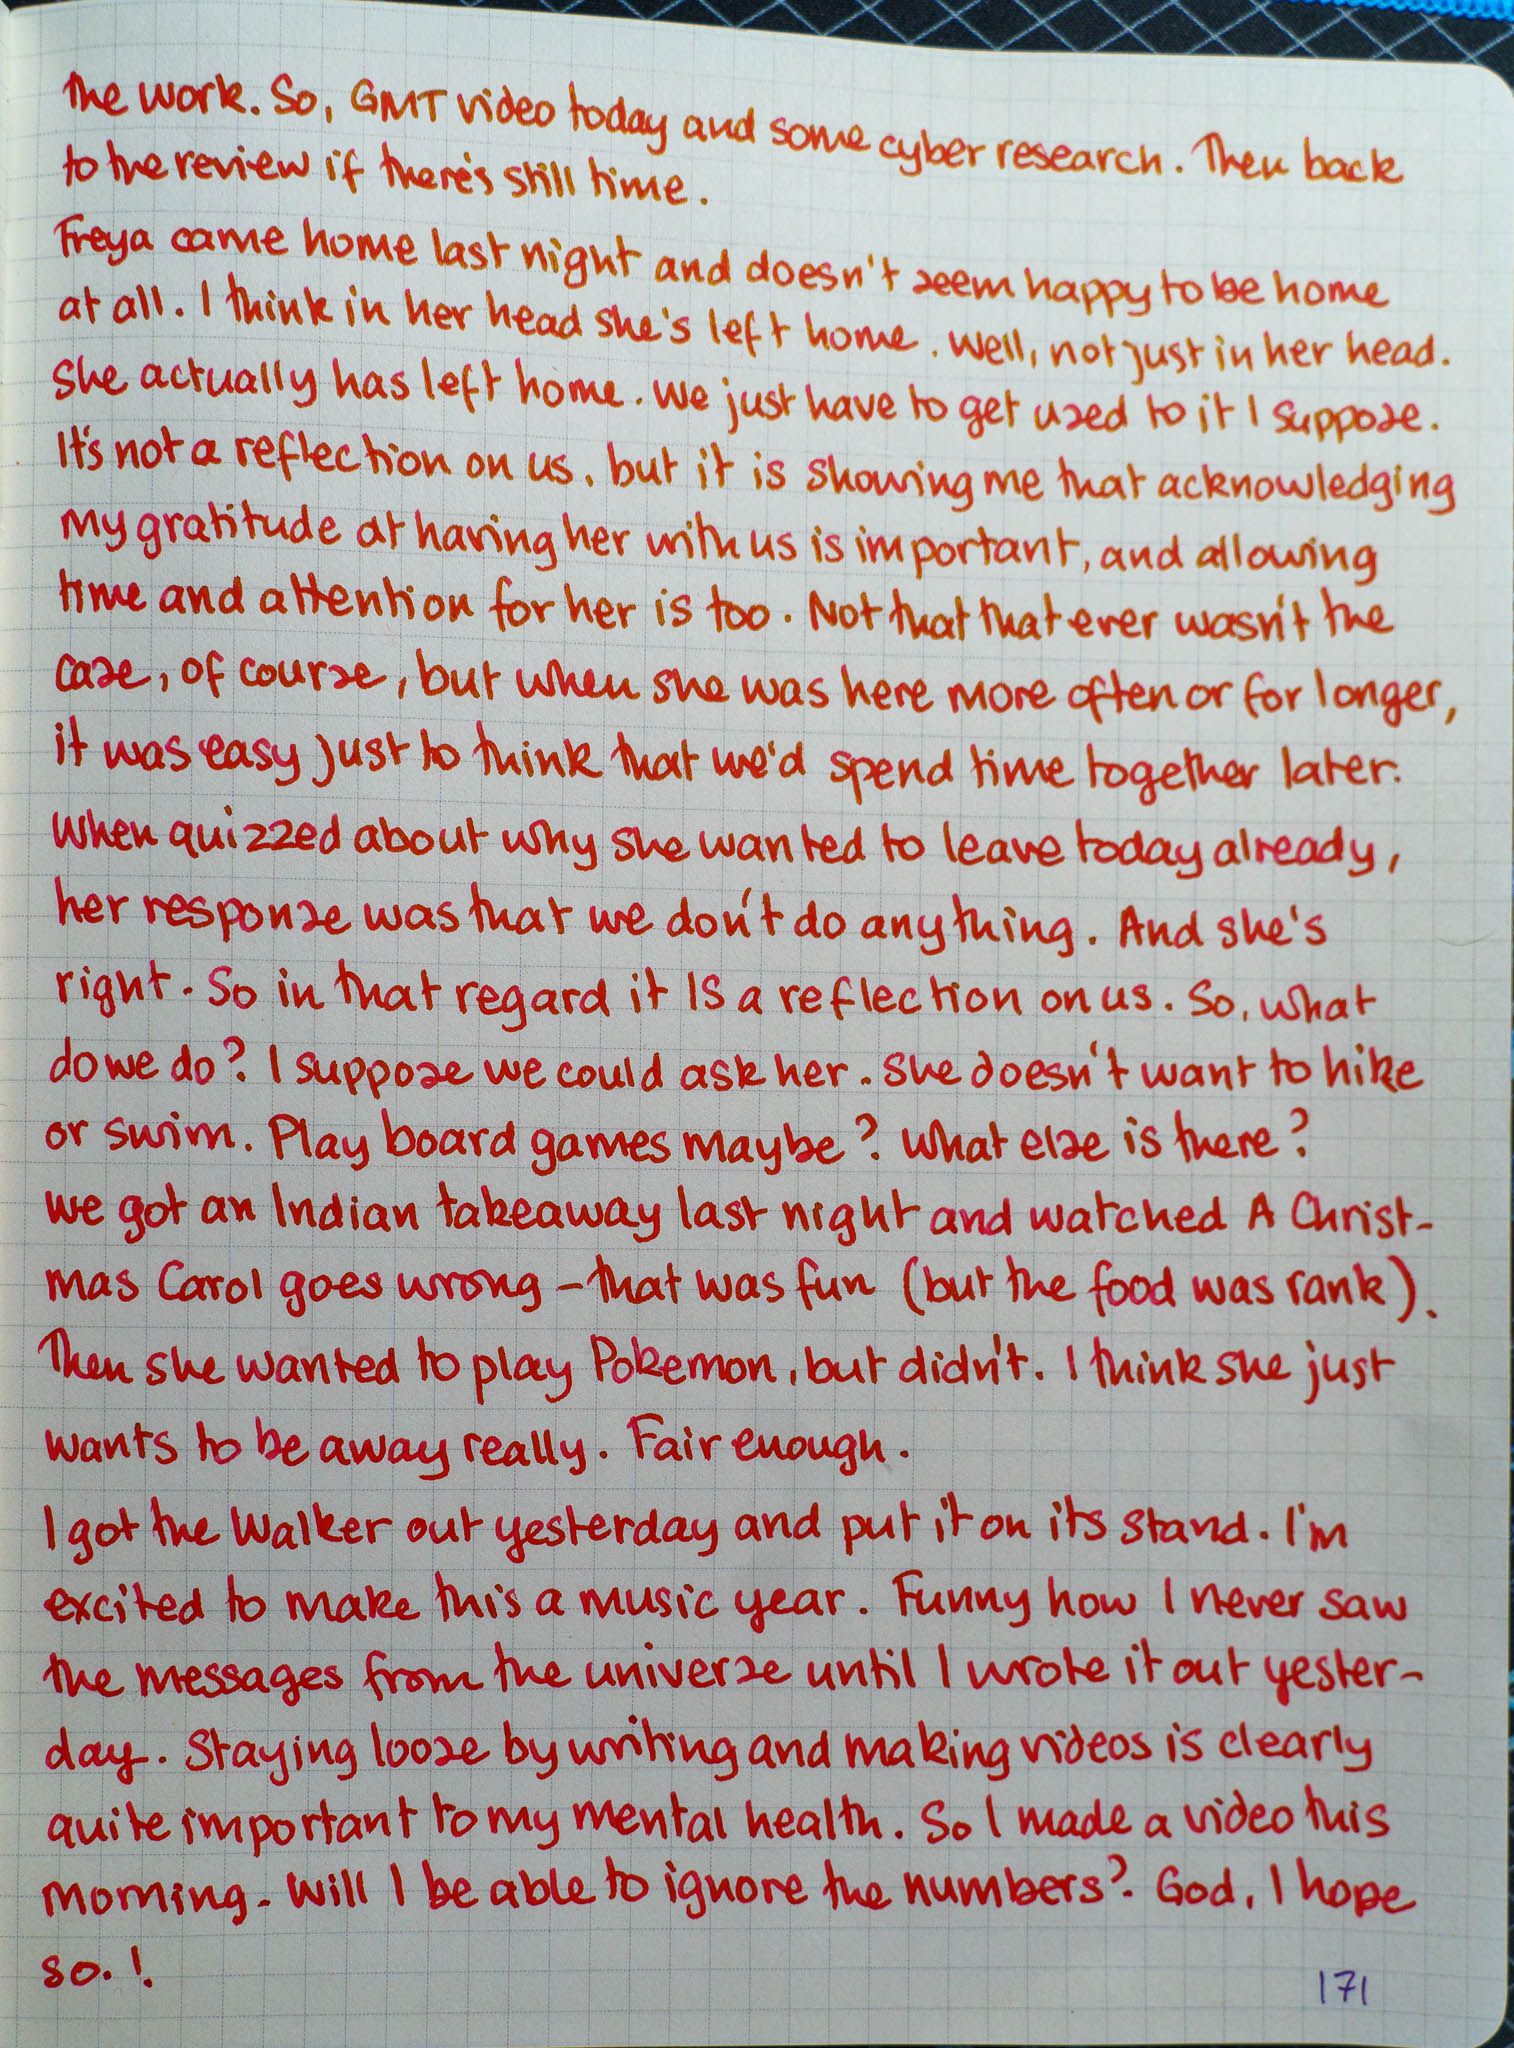 the work. So, GMT video today and some cyber research. Then back
to the review if there's still time.
Freya came home last night and doesn't seem happy to be home
at all. I think in her head she's left home. Well, not just in her head.
She actually has left home. We just have to get used to it I suppose.
It's not a reflection on us, but it is showing me that acknowledging
my gratitude at having her with us is important, and allowing
time and attention for her is too. Not that that ever wasn't the
case, of course, but when she was here more often or for longer,
it was easy just to think that we'd spend time together later.
When quizzed about why she wanted to leave today already,
her response was that we don't do anything. And she's
right. So in that regard it IS a reflection on us. So, what
do we do? I suppose we could ask her. She doesn't want to hike
or swim. Play board games maybe? What else is there?
We got an Indian takeaway last night and watched A Christ-
mas Carol goes wrong - that was fun (but the food was rank).
Then she wanted to play Pokemon, but didn't. I think she just
wants to be away really. Fair enough.
I got the Walker out yesterday and put it on its stand. I'm
excited to make this a music year. Funny how I never saw
the messages from the universe until I wrote it out yester-
day. Staying loose by writing and making videos is clearly
quite important to my mental health. So I made a video this
morning. Will I be able to ignore the numbers? God, I hope
so. !
171